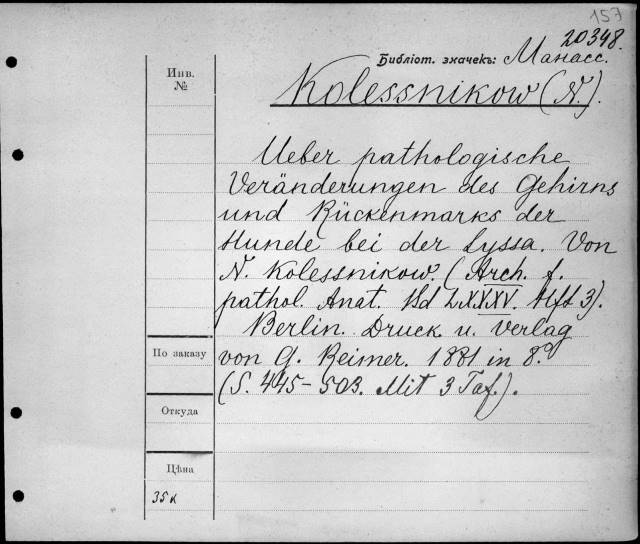 157
20348.
Библіот. значекъ: Манасс.
Инв.
№
Kolessnikow (N.).
Ueber pathologische
Veränderungen des Gehirns
und Rückenmarks der
Hunde bei der Lyssa. Von
N. Kolessnikow. (Arch. f.
pathol. Anat. Bd LXXXV. Hft 3).
Berlin. Druck u. Verlag
von G. Reimer. 1881 in 8°.
(S. 445-503. Mit 3 Taf.).
По заказу
Откуда
Цѣна
35 к